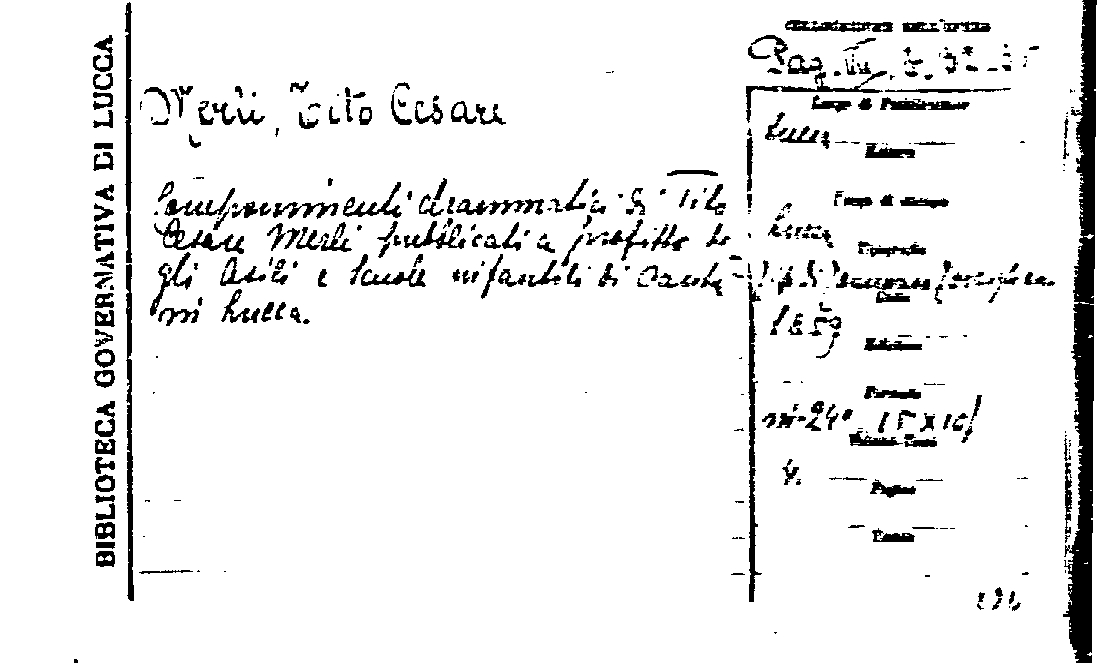 BIBLIOTECA GOVERNATIVA DI LUCCA
COLLOCAZIONE DELL'OPERA
Pag.
Merli, Tito Cesare
Componimenti drammatici di Tito
Cesare Merli pubblicati a profitto de
gli Asili e Scuole infantili di Carità
in Lucca.
Luogo di Pubblicazione
Lucca
Editore
Luogo di stampa
Lucca
Tipografia
Data
1859
Edizione
Formato
in-24° 15x10
Volume Tomi
4.
Pagine